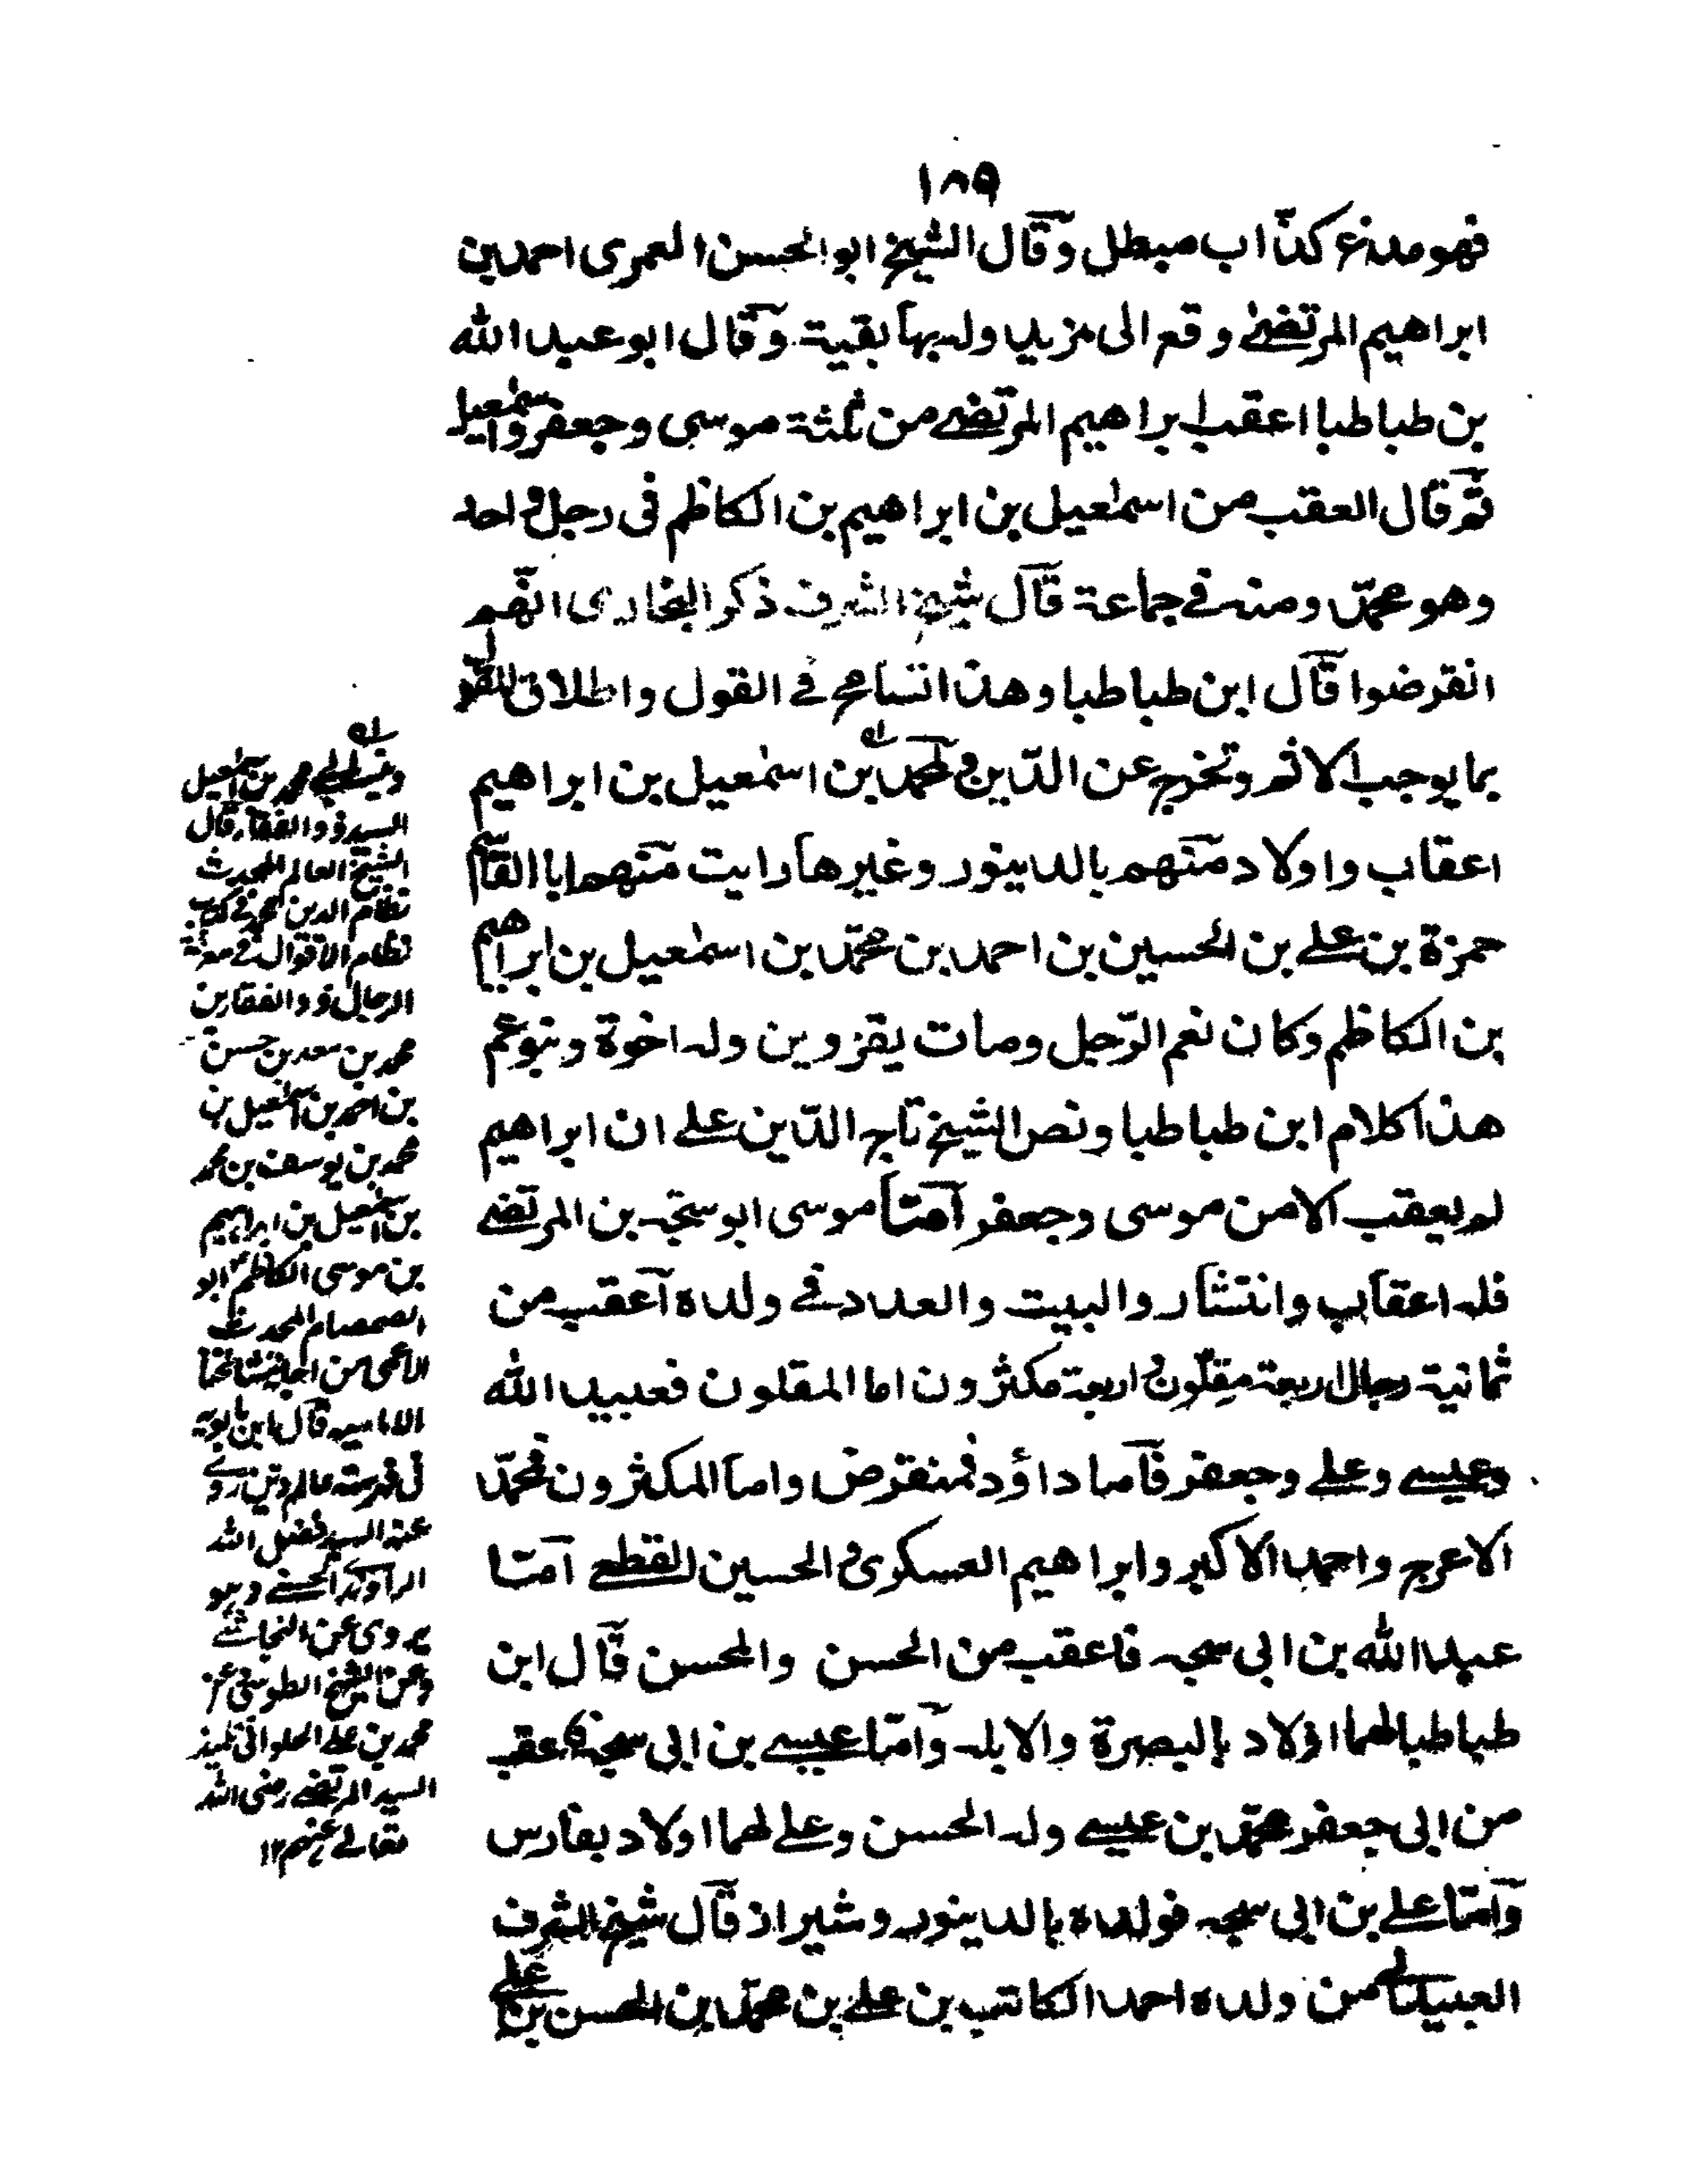 ١٨٩
فهو مدع كذّاب مبطل وقال الشيخ ابو الحسن العمرى احمد بن
ابراهيم المرتضى وقع الى مزيد وله بها بقية وقال ابو عبد الله
بن طباطبا اعقب ابراهيم المرتضى من ثلثة موسى وجعفر واسمٰعيل
ثم قال العقب من اسمٰعيل بن ابراهيم بن الكاظم فى رجل واحد
وهو محمّد ومنه فى جماعة قال شيخ الشرف ذكر البخارى انّهم
انقرضوا قال ابن طباطبا وهذا تسامح فى القول واطلاق القول
بما يوجب الاثم وتخرج عن الدّين ولمحمد بن اسمٰعيل بن ابراهيم
اعقاب واولاد منهم بالدينور وغيرها رايت منهم ابا القاسم
حمزة بن على بن الحسين بن احمد بن محمّد بن اسمٰعيل بن ابراهيم
بن الكاظم وكان نعم الرّجل ومات بقزوين وله اخوة وبنو عم
هذا كلام ابن طباطبا ونص الشيخ تاج الدّين على ان ابراهيم
لم يعقب الا من موسى وجعفر امّا موسى ابو سبحه بن المرتضى
فله اعقاب وانتشار والبيت والعدد فى ولده اعقب من
ثمانية رجال اربعة مقلّون و اربعة مكثرون اما المقلون فعبيد الله
وعيسى وعلى وجعفر فاما داؤد فمنقرض واما المكثرون فمحمّد
الاعرج واحمد الاكبر وابراهيم العسكرى والحسين القطعى امّا
عبد الله بن ابى سبحه فاعقب من الحسن والمحسن قال ابن
طباطبا لهما اولاد بالبصرة والابله وامّا عيسى بن ابى سبحه فاعقب
من ابى جعفر محمّد بن عيسى وله الحسن وعلى لهما اولاد بفارس
وامّا على بن ابى سبحه فولده بالدينور وشيراز قال شيخ الشرف
العبيدلى من ولده احمد الكاتب بن على بن محمّد بن الحسن بن على
وينسب الى محمد بن اسمٰعيل
السيد ذو الفقار قال
الشيخ العالم المحدث
نظام الدين محمد فى كتاب
نظام الاقوال فى معرفة
الرجال ذو الفقار بن
محمد بن سعد بن حسن
بن احمد بن اسمٰعيل بن
محمد بن يوسف بن محمد
بن اسمٰعيل بن ابراهيم
بن موسى الكاظم ابو
الصمصام المحدث
الاعمى من اجلة مشائخنا
الاماميه قال ابن بابويه
فى فهرسته عالم دين روى
عنه السيد فضل الله
الراوندى الحسنى وهو
يروى عن النجاشى
وعن الشيخ الطوسى عن
محمد بن على الحلوانى تلميذ
السيد المرتضى رضى الله
تعالى عنهم ١٢